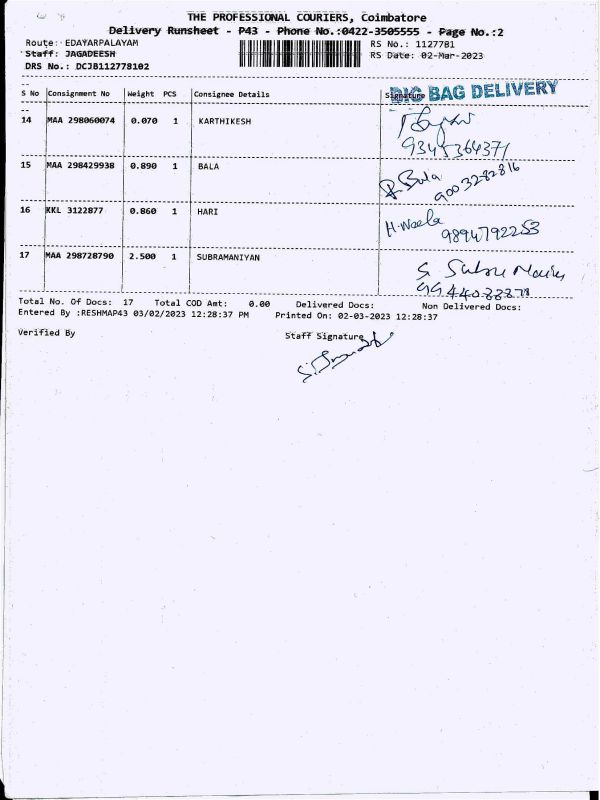 THE PROFESSIONAL COURIERS, Coimbatore
Delivery Runsheet - P43 - Phone No.:0422-3505555 - Page No.:2
Route: EDAYARPALAYAM
RS No.: 1127781
Staff: JAGADEESH
RS Date: 02-Mar-2023
DRS No.: DCJB112778102
S No Consignment No Weight PCS Consignee Details Signature
BIG BAG DELIVERY
14 MAA 298060074 0.070 1 KARTHIKESH
9345364371
15 MAA 298429938 0.890 1 BALA
Bala
9003282816
16 KKL 3122877 0.860 1 HARI
9894792253
17 MAA 298728790 2.500 1 SUBRAMANIYAN
S
Total No. Of Docs: 17 Total COD Amt: 0.00 Delivered Docs: Non Delivered Docs:
Entered By :RESHMAP43 03/02/2023 12:28:37 PM Printed On: 02-03-2023 12:28:37
Verified By
Staff Signature